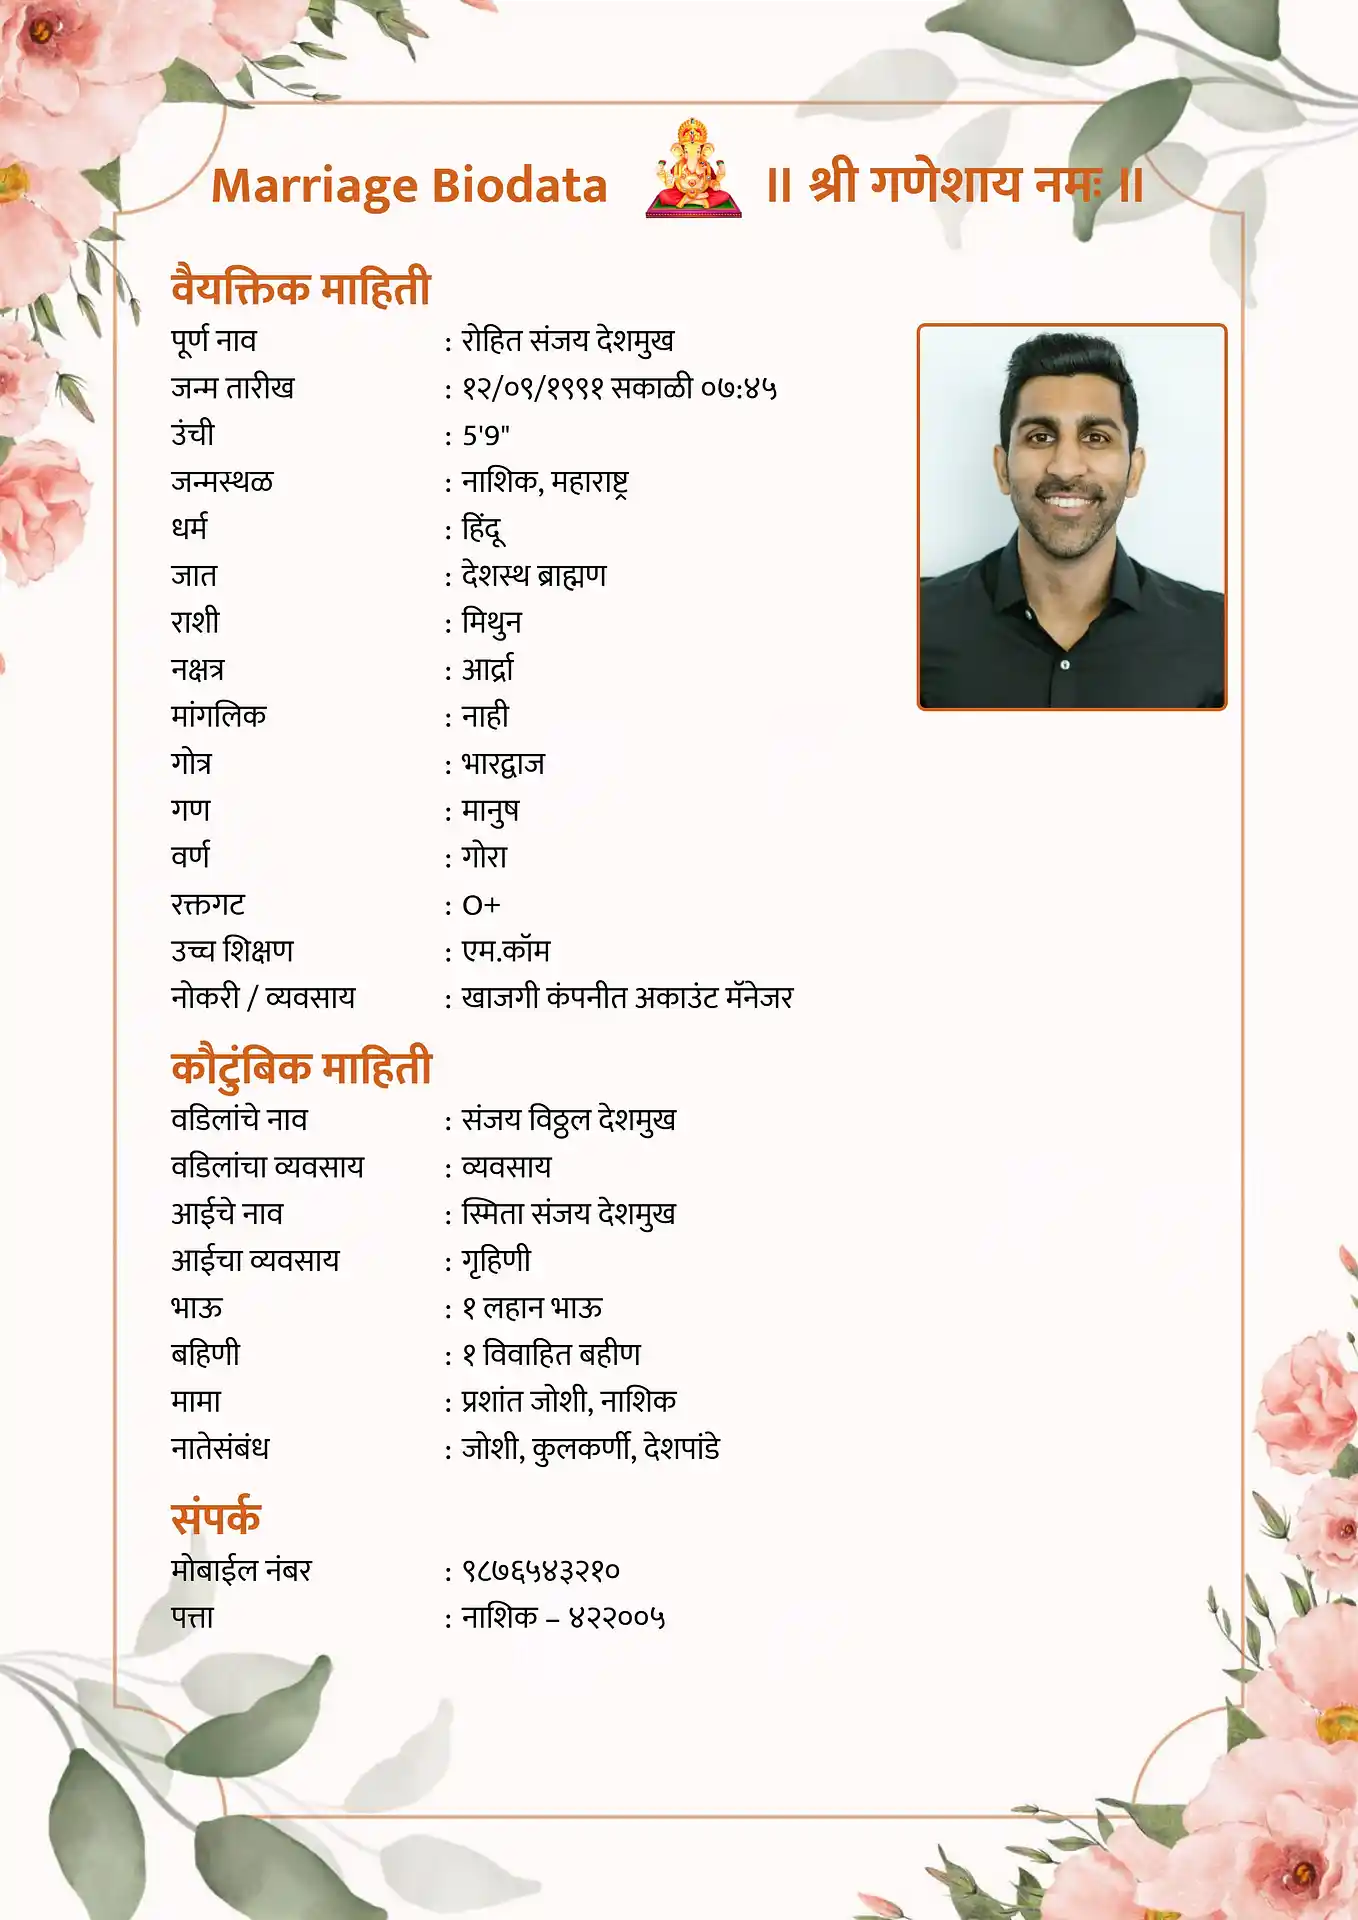 Marriage Biodata ॥ श्री गणेशाय नमः ॥
वैयक्तिक माहिती
पूर्ण नाव : रोहित संजय देशमुख
जन्म तारीख : १२/०९/१९९१ सकाळी ०७:४५
उंची : 5'9"
जन्मस्थळ : नाशिक, महाराष्ट्र
धर्म : हिंदू
जात : देशस्थ ब्राह्मण
राशी : मिथुन
नक्षत्र : आर्द्रा
मांगलिक : नाही
गोत्र : भारद्वाज
गण : मानुष
वर्ण : गोरा
रक्तगट : O+
उच्च शिक्षण : एम.कॉम
नोकरी / व्यवसाय : खाजगी कंपनीत अकाउंट मॅनेजर
कौटुंबिक माहिती
वडिलांचे नाव : संजय विठ्ठल देशमुख
वडिलांचा व्यवसाय : व्यवसाय
आईचे नाव : स्मिता संजय देशमुख
आईचा व्यवसाय : गृहिणी
भाऊ : १ लहान भाऊ
बहिणी : १ विवाहित बहीण
मामा : प्रशांत जोशी, नाशिक
नातेसंबंध : जोशी, कुलकर्णी, देशपांडे
संपर्क
मोबाईल नंबर : ९८७६५४३२१०
पत्ता : नाशिक – ४२२००५